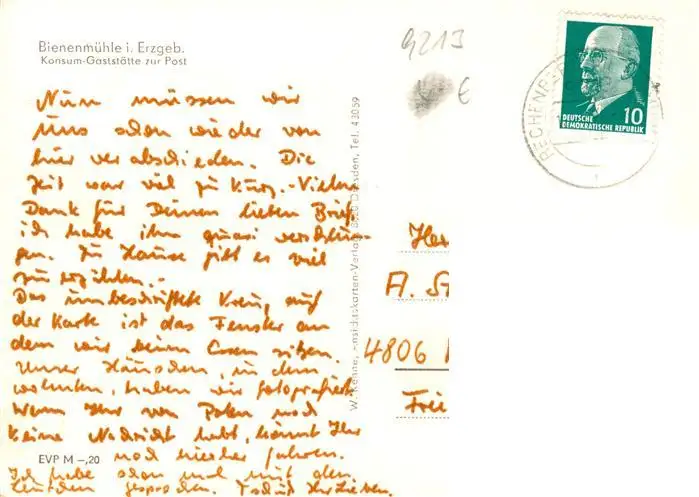 Bienenmühle i. Erzgeb.
Konsum-Gaststätte zur Post
Nun müssen wir
uns schon wieder von
hier verabschieden. Die
Zeit war viel zu kurz.- Vielen
Dank für Deinen lieben Brief,
ich habe ihn quasi verschlun-
gen. Zu Hause gibt es viel
zu erzählen.-
Das unbeschriftete Kreuz auf
der Karte ist das Fenster an
dem wir beim Essen sitzen.
Unser Häuschen, in dem
wohnten, haben wir fotografiert.
Wenn Ihr von Polen noch
keine Nachricht habt, könnt Ihr
noch hierher fahren.
Ich habe schon mal mit den
Leuten gesprochen. Ihr Lieben.
EVP M –,20
W. Kenne, Ansichtskarten-Verlag, Dresden, Tel. 43059
9213
€
RECHENBE
10
DEUTSCHE
DEMOKRATISCHE REPUBLIK
Her
A. St
4806
Frei